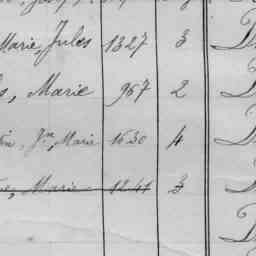 Marie, Jules 1327 3 D
s, Marie 967 2 D
in, Jn, Marie 1630 4 D
e, Marie 1241 3 D
D